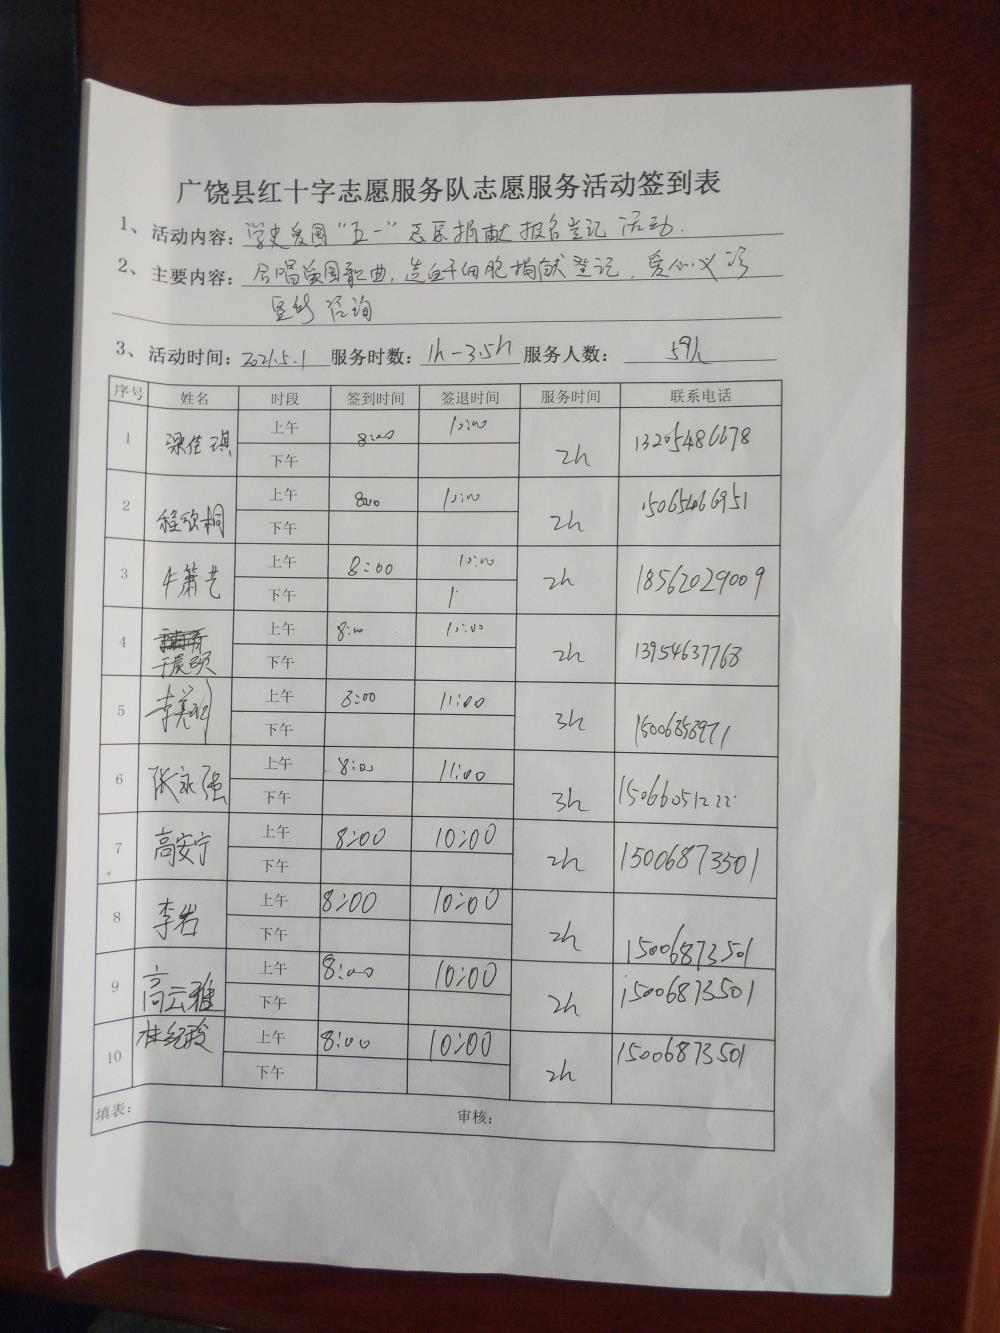 广饶县红十字志愿服务队志愿服务活动签到表
1、活动内容：学史爱国“五一”志愿捐献报名登记活动.
2、主要内容：合唱爱国歌曲，造血干细胞捐献登记，爱心义诊
咨询
3、活动时间：2021.5.1 服务时数：1h-3.5h 服务人数：59人
序号 姓名 时段 签到时间 签退时间 服务时间 联系电话
1 梁佳琪 上午 8:00 10:00 2h 13205486678
下午
2 程欣桐 上午 8:00 10:00 2h 15065466951
下午
3 牛箫艺 上午 8:00 10:00 2h 18562029009
下午 1
4 于晨硕 上午 8:00 10:00 2h 13954637768
下午
5 李美 上午 8:00 11:00 3h 15006858971
下午
6 张永强 上午 8:00 11:00 3h 15066051222
下午
7 高安宁 上午 8:00 10:00 2h 15006873501
下午
8 李岩 上午 8:00 10:00 2h 15006873501
下午
9 高云雅 上午 8:00 10:00 2h 15006873501
下午
10 桂纪玲 上午 8:00 10:00 2h 15006873501
下午
填表： 审核：